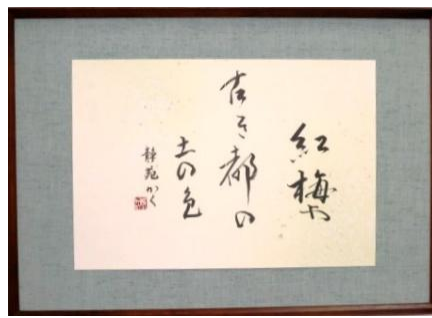 紅梅や
古き都の
土の色
静苑かく